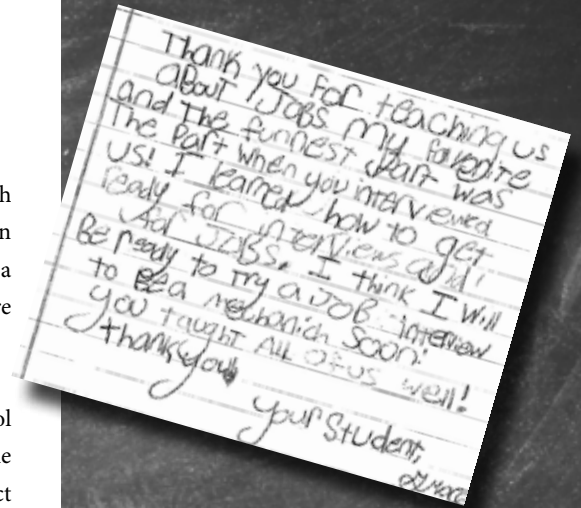 h
n
a
re
ol
e
ct
Thank you For teaching us
aBout JoBs my favorite
and The funnest part was
The Part when you interviewed
us! I learned how to get
ready for interviews and
for JoBs, I think I will
Be ready to Try a JOB interview
to Be a mechanich Soon!
you taught All of us well!
thankyou!
your Student,